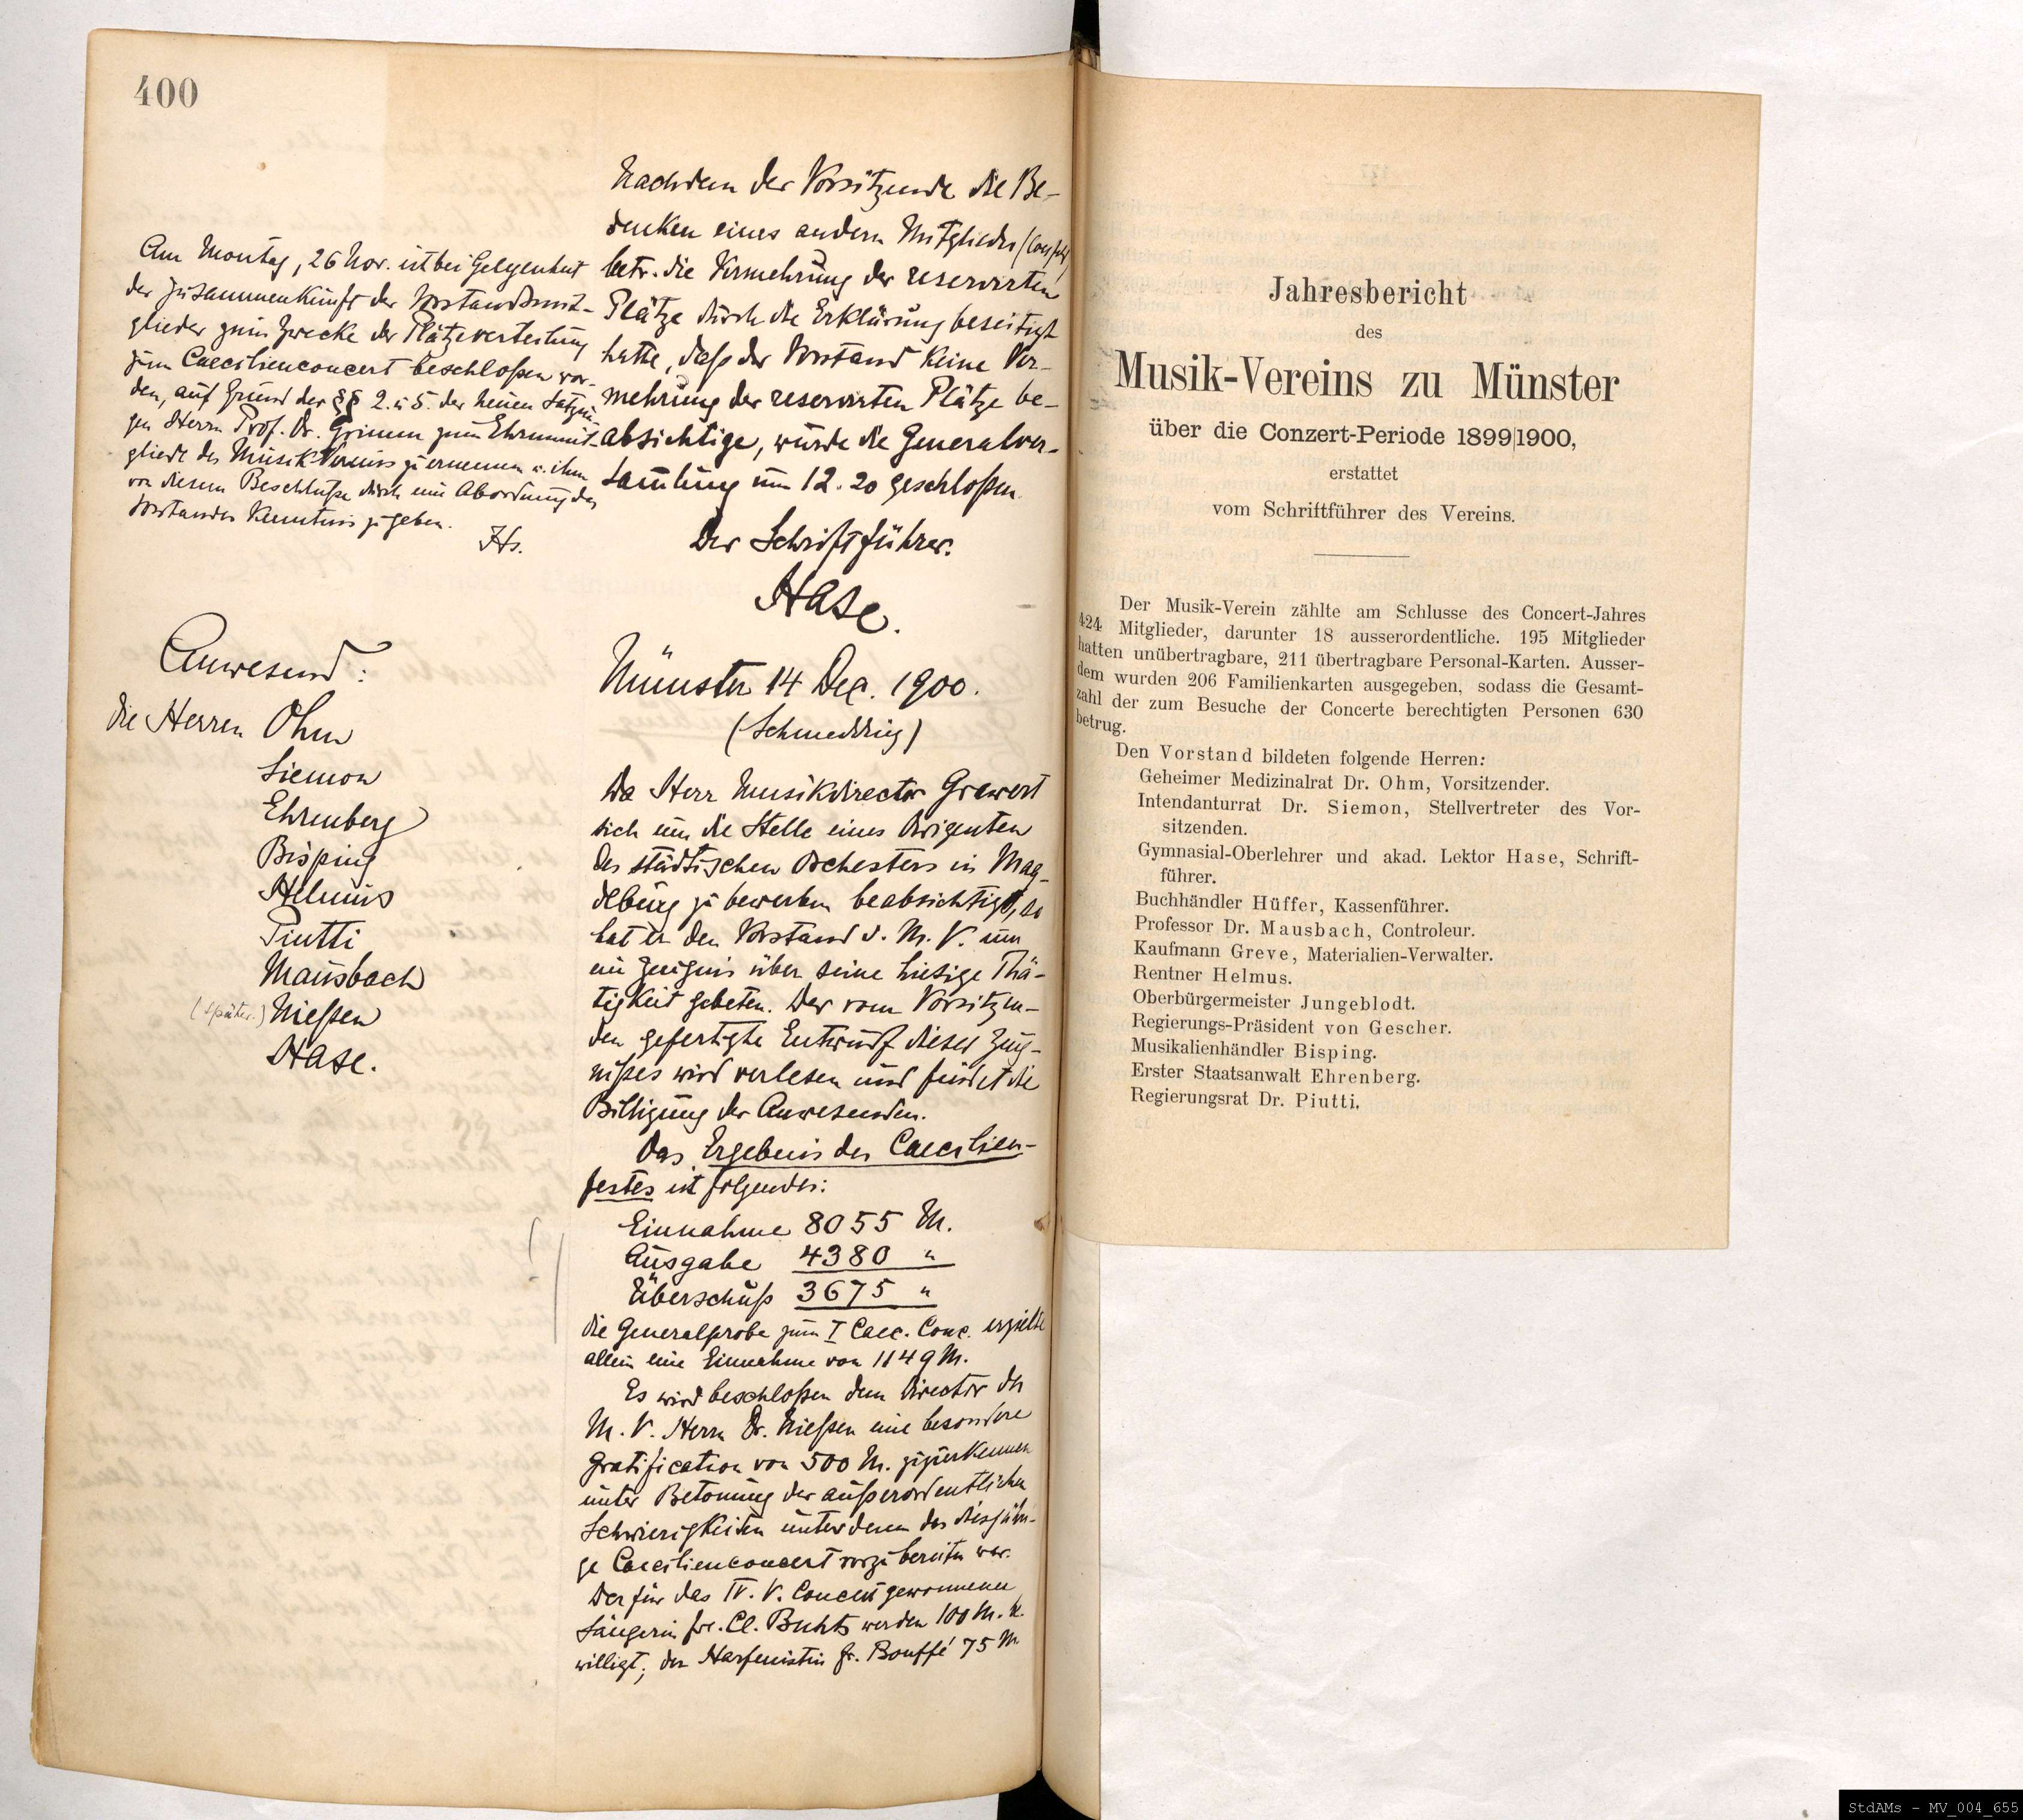 400
Am Montag, 26 Nov. ist bei Gelegenheit
der Zusammenkunft der Vorstandsmit-
glieder zum Zwecke der Plätzeverteilung
zum Caecilienconcert beschloßen wor-
den, auf Grund der §§ 2. u 5. der neuen Satzun
gen Herrn Prof. Dr. Grimm zum Ehrenmit-
gliede des Musik Vereins zu ernennen u. ihm
von diesem Beschluße durch eine Abordnung des
Vorstandes Kenntnis zu geben.
Hs.
Nachdem der Vorsitzende die Be-
denken eines andern Mitgliedes
betr. die Vermehrung der reservirten
Plätze durch die Erklärung beseitigt
hatte, daß der Vorstand keine Ver-
mehrung der reservirten Plätze be-
absichtige, wurde die Generalver-
samlung um 12.20 geschloßen.
Der Schriftführer.
Hase.
Anwesend:
die Herren Ohm
Siemon
Ehrenberg
Bisping
Helmus
Piutti
Mausbach
(später.) Nießen
Hase.
Münster 14 Dez. 1900.
(Schmedding)
Da Herr Musikdirector Grawert
sich um die Stelle eines Dirigenten
des städtischen Orchesters in Mag-
deburg zu bewerben beabsichtigt, so
hat er den Vorstand d. M. V. um
ein Zeugnis über seine hiesige Thä-
tigkeit gebeten. Der vom Vorsitzen-
den gefertigte Entwurf dieses Zeug-
nißes wird verlesen und findet die
Billigung der Anwesenden.
Das Ergebnis des Caecilien-
festes ist folgendes:
Einnahme 8055 M.
Ausgabe 4380 "
Überschuß 3675 "
Die Generalprobe zum I Caec. Conc. erzielte
allein eine Einnahme von 1149 M.
Es wird beschloßen dem Director des
M. V. Herrn Dr. Nießen eine besondere
Gratification von 500 M. zuzuerkennen
unter Betonung der außerordentlichen
Schwierigkeiten unter denen das diesjähri-
ge Caecilienconcert vorzubereiten war.
Der für das IV. V. Concert gewonnenen
Sängerin Fr. Cl. Buhts werden 100 M. be
willigt; der Harfenistin Fr. Bouffé 75 M
Jahresbericht
des
Musik-Vereins zu Münster
über die Conzert-Periode 1899|1900,
erstattet
vom Schriftführer des Vereins.
Der Musik-Verein zählte am Schlusse des Concert-Jahres
424 Mitglieder, darunter 18 ausserordentliche. 195 Mitglieder
hatten unübertragbare, 211 übertragbare Personal-Karten. Ausser-
dem wurden 206 Familienkarten ausgegeben, sodass die Gesamt-
zahl der zum Besuche der Concerte berechtigten Personen 630
betrug.
Den Vorstand bildeten folgende Herren:
Geheimer Medizinalrat Dr. Ohm, Vorsitzender.
Intendanturrat Dr. Siemon, Stellvertreter des Vor-
sitzenden.
Gymnasial-Oberlehrer und akad. Lektor Hase, Schrift-
führer.
Buchhändler Hüffer, Kassenführer.
Professor Dr. Mausbach, Controleur.
Kaufmann Greve, Materialien-Verwalter.
Rentner Helmus.
Oberbürgermeister Jungeblodt.
Regierungs-Präsident von Gescher.
Musikalienhändler Bisping.
Erster Staatsanwalt Ehrenberg.
Regierungsrat Dr. Piutti.
StdAMs - MV_004_655